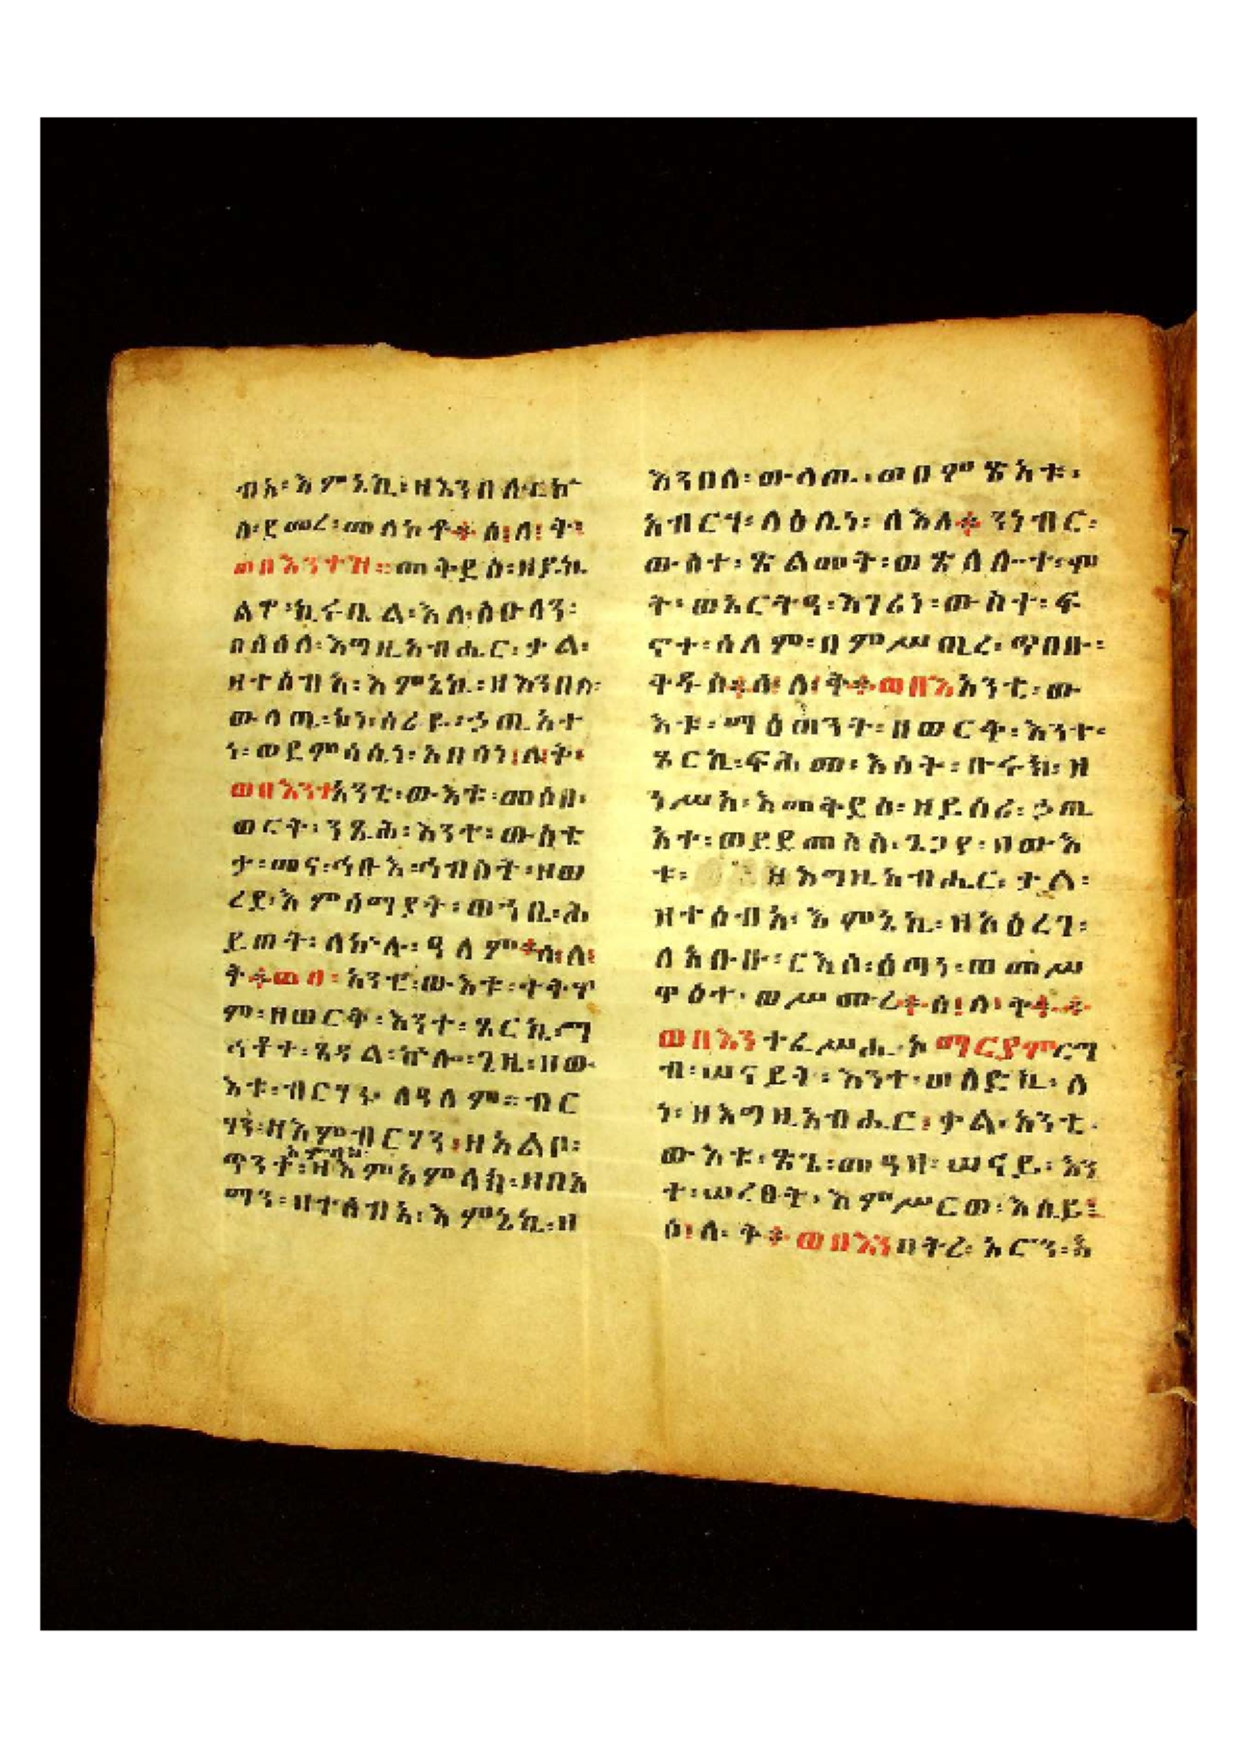 ብአ፡ እምኔኪ፡ ዘእንበለ፡ ርኩ
ስ፡ ደመረ፡ መለኮቶ፨ ሰ፡ለ፡ ት፡
ወበእንተዝ፡፡ መቅደስ፡ ዘይኬ
ልዋ፡ ኪሩቤል፡ እለ፡ ስዑላን፡
በስዕለ፡ እግዚአብሔር፡ ቃል፡
ዘተሰብአ፡ እምኔኪ፡ ዘእንበለ፡
ውላጤ፡ ኮነ፡ ሰረዬ፡ ኃጢአተ
ነ፡ ወደምሳሴ፡ አበሳነ፡ለ፡ት፡
ወበእንተአንቲ፡ ውእቱ፡ መሶበ፡
ወርቅ፡ ንጹሕ፡ እንተ፡ ውስቴ
ታ፡ መና፡ ኅቡእ፡ ኅብስት፡ ዘወ
ረደ፡ እምሰማያት፡ ወኀቤ፡ ሕ
ይወት፡ ለኵሉ፡ ዓለም፨ ሰ፡ለ፡
ት፨ወበ፡ አንቲ፡ ውእቱ፡ ተቅዋ
ም፡ ዘወርቅ፡ እንተ፡ ጾርኪ፡ ማ
ኅቶተ፡ ፀዳል፡ ኵሎ፡ ጊዜ፡ ዘው
እቱ፡ ብርሃኑ፡ ለዓለም፡፡ ብር
ሃን፡ ዘእምብርሃን፡ ዘአልቦ፡
ጥንተ፡ ዘእምአምላክ፡ ዘበአ
ማን፡ ዘተሰብአ፡ እምኔኪ፡ ዘ
እንበለ፡ ውላጤ፡ ወበምጽአቱ፡
አብርሃ፡ ላዕሌነ፡ ለእለ፨ ንነብር፡
ውስተ፡ ጽልመት፡ ወጽላሎተ፡ ሞ
ት፡ ወአርትዓ፡ እገሪነ፡ ውስተ፡ ፍ
ኖተ፡ ሰላም፡ በምሥጢረ፡ ጥበቡ፡
ቅዱስ፨ሰ፡ ለ፡ ት፨ወበእአንቲ፡ ው
እቱ፡ ማዕጠንት፡ ዘወርቅ፡ እንተ፡
ጾርኪ፡ ፍሕመ፡ እሳት፡ ቡሩክ፡ ዘ
ንሥአ፡ እመቅደስ፡ ዘይሰሪ፡ ኃጢ
አተ፡ ወይደመስስ፡ ጌጋየ፡ ዝውእ
ቱ፡ ዘእግዚአብሔር፡ ቃል፡
ዘተሰብአ፡ እምኔኪ፡ ዘአዕረገ፡
ለአቡሁ፡ ርእሰ፡ ዕጣን፡ ወመሥ
ዋዕተ፡ ወሥሙረ፨ ሰ፡ ለ፡ ት፨
ወበእንተፈሥሒ፡ ኦማርያምርግ
ብ፡ ሠናይት፡ እንተ፡ ወለድኪ፡ ለ
ነ፡ ዘእግዚአብሔር፡ ቃል፡ አንቲ፡
ውእቱ፡ ጽጌ፡ መዓዛ፡ ሠናይ፡ እን
ተ፡ ሠረፀት፡ እምሥርወ፡ እሴይ፡
ሰ፡ ለ፡ ት፨ ወበእንበትረ፡ አሮን፡ እ